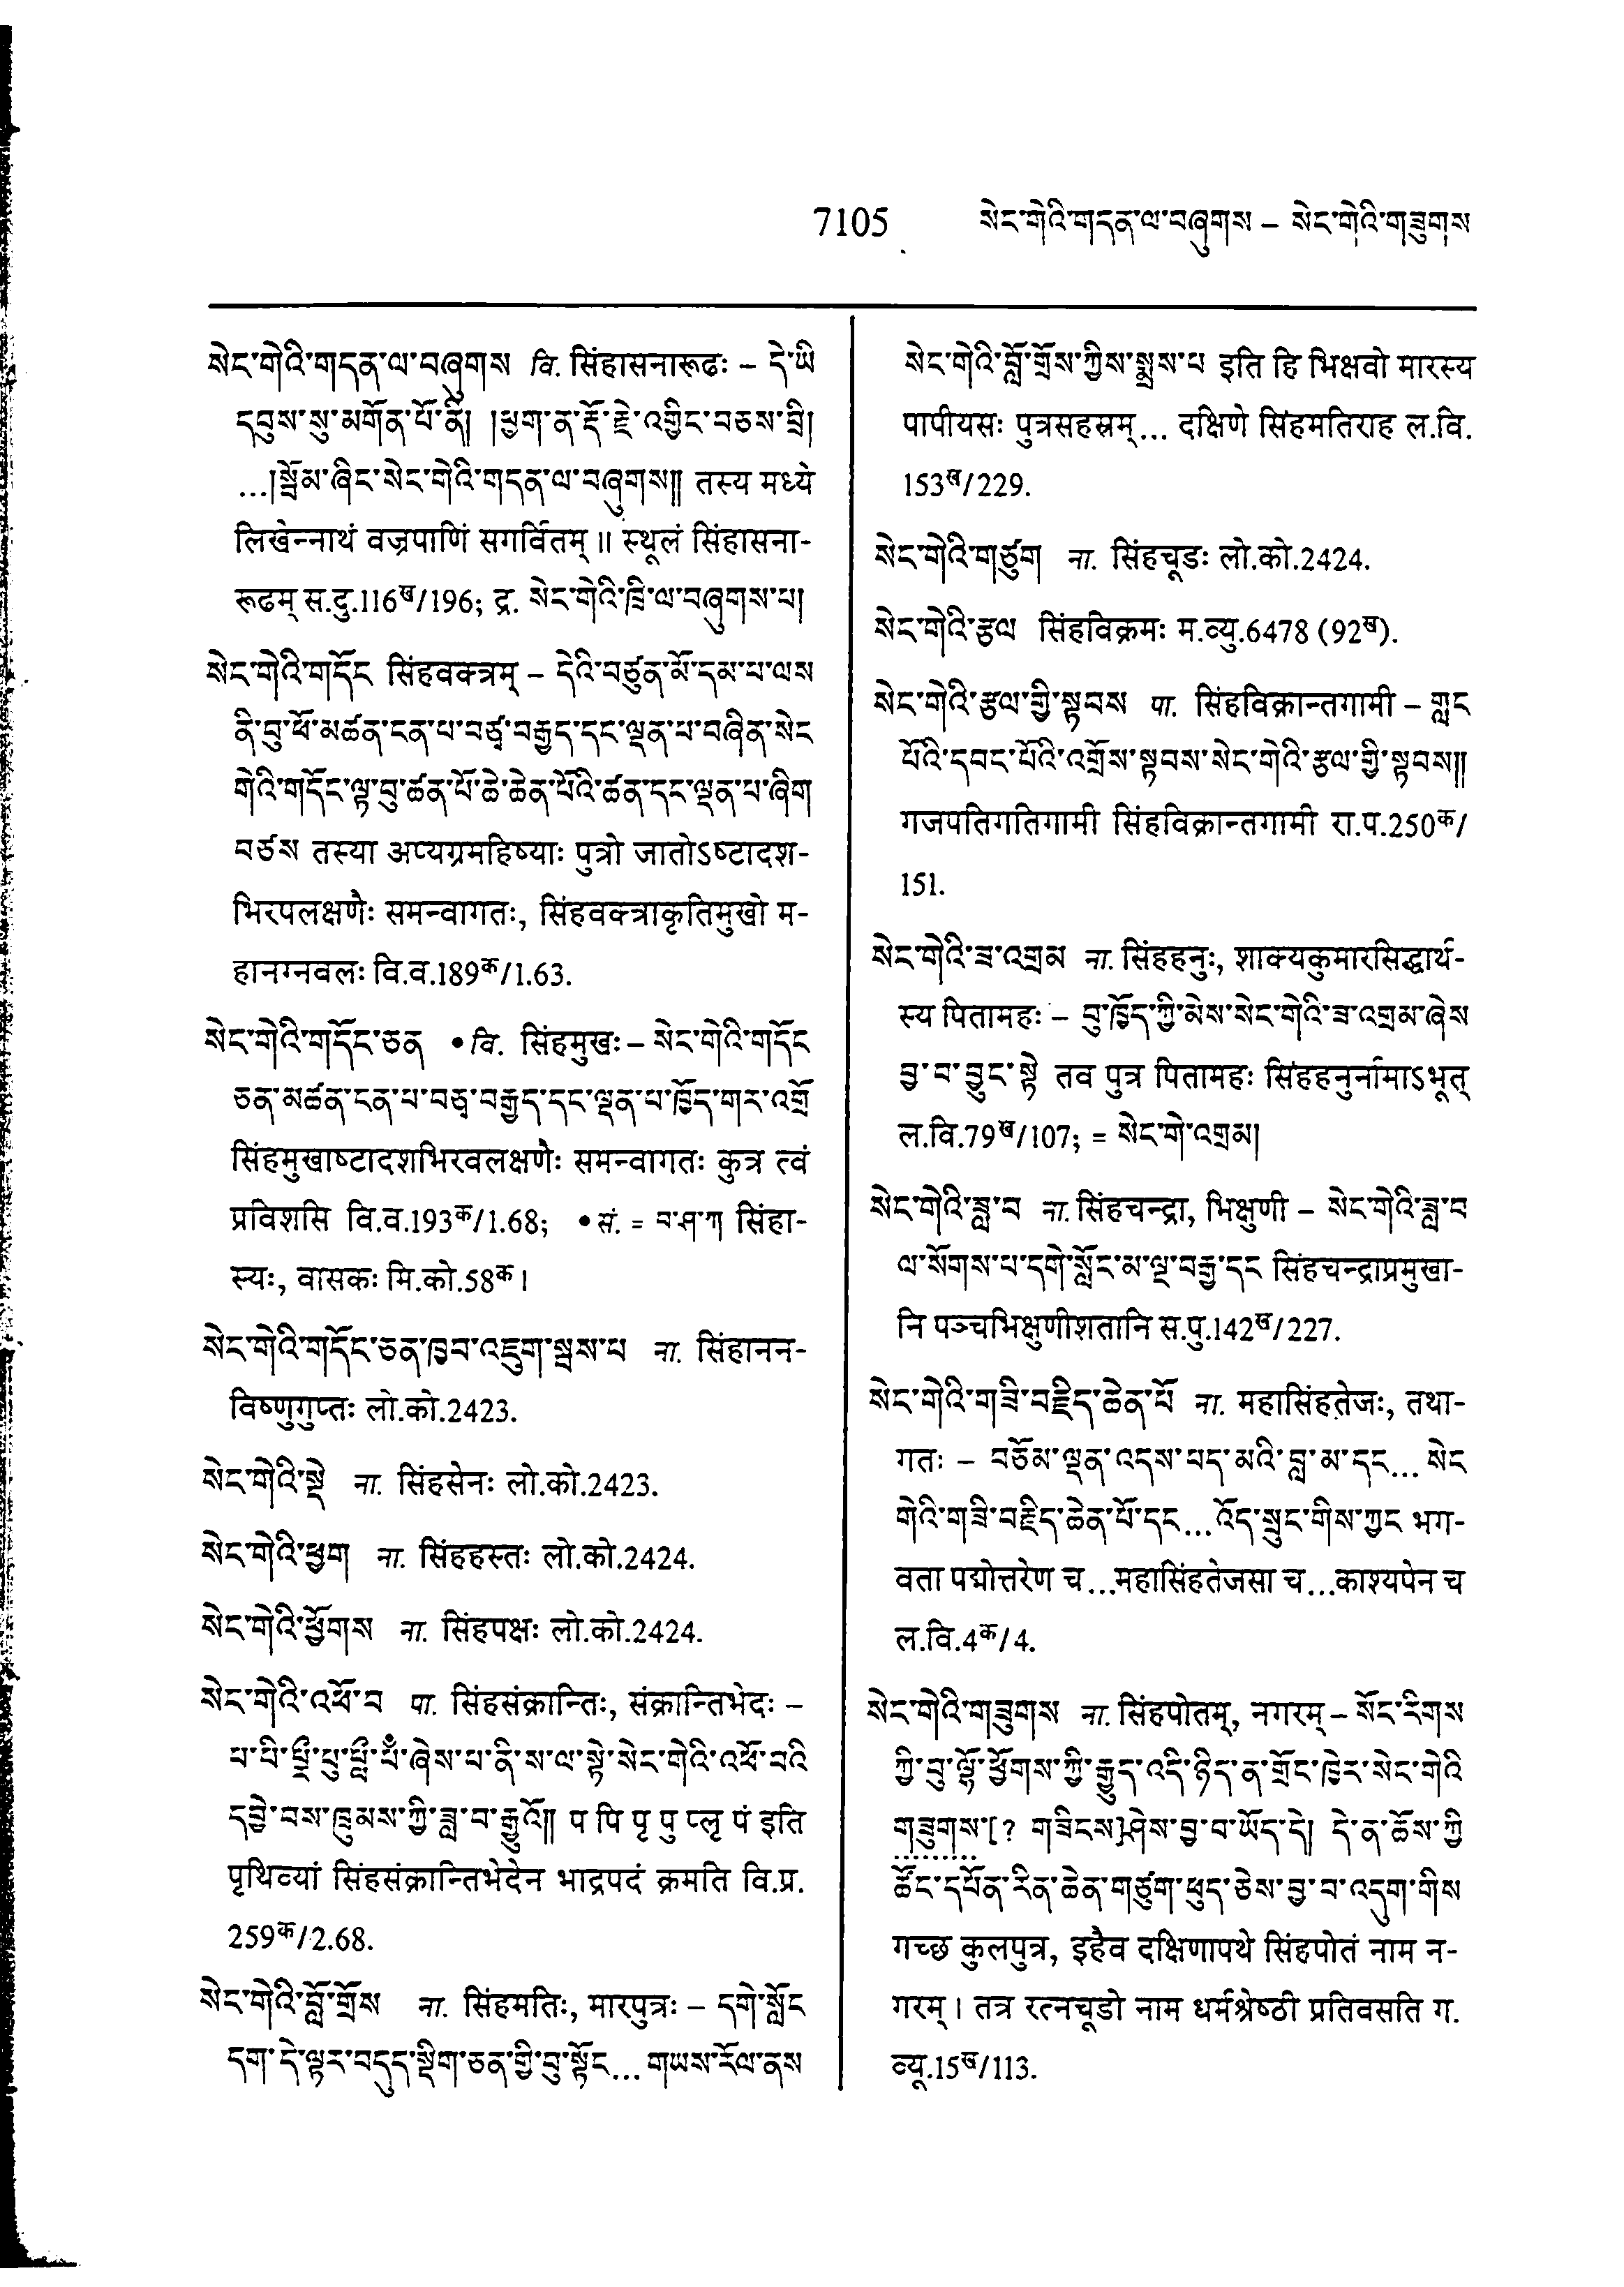 7105 སེང་གེའི་གདན་ལ་བཞུགས – སེང་གེའི་གཟུགས
སེང་གེའི་གདན་ལ་བཞུགས वि. सिंहासनारूढः – དེ་ཡི
དབུས་སུ་མགོན་པོ་ནི། །ཕྱག་ན་རྡོ་རྗེ་འགྱིང་བཅས་བྲི།
...།སྦོམ་ཞིང་སེང་གེའི་གདན་ལ་བཞུགས།། तस्य मध्ये
लिखेन्नाथं वज्रपाणिं सगर्वितम् ॥ स्थूलं सिंहासना-
रूढम् स.दु.116ख/196; द्र. སེང་གེའི་ཁྲི་ལ་བཞུགས་པ།
སེང་གེའི་གདོང सिंहवक्त्रम् – དེའི་བཙུན་མོ་དམ་པ་ལས
ནི་བུ་ཕོ་མཚན་ངན་པ་བཅྭ་བརྒྱད་དང་ལྡན་པ་བཞིན་སེང
གེའི་གདོང་ལྟ་བུ་ཚན་པོ་ཆེ་ཆེན་པོའི་ཚན་དང་ལྡན་པ་ཞིག
བཙས तस्या अप्यग्रमहिष्याः पुत्रो जातोऽष्टादश-
भिरपलक्षणैः समन्वागतः, सिंहवक्त्राकृतिमुखो म-
हानग्नवलः वि.व.189क/1.63.
སེང་གེའི་གདོང་ཅན • वि. सिंहमुखः – སེང་གེའི་གདོང
ཅན་མཚན་ངན་པ་བཅྭ་བརྒྱད་དང་ལྡན་པ་ཁྱོད་གར་འགྲོ
सिंहमुखाष्टादशभिरवलक्षणैः समन्वागतः कुत्र त्वं
प्रविशसि वि.व.193क/1.68; • सं. = བ་ཤ་ཀ། सिंहा-
स्यः, वासकः मि.को.58क।
སེང་གེའི་གདོང་ཅན་ཁྱབ་འཇུག་སྦས་པ ना. सिंहानन-
विष्णुगुप्तः लो.को.2423.
སེང་གེའི་སྡེ ना. सिंहसेनः लो.को.2423.
སེང་གེའི་ཕྱག ना. सिंहहस्तः लो.को.2424.
སེང་གེའི་ཕྱོགས ना. सिंहपक्षः लो.को.2424.
སེང་གེའི་འཕོ་བ पा. सिंहसंक्रान्तिः, संक्रान्तिभेदः –
པ་པི་པྲྀ་པུ་པླྀ་པཾ་ཞེས་པ་ནི་ས་ལ་སྟེ་སེང་གེའི་འཕོ་བའི
དབྱེ་བས་ཁྲུམས་ཀྱི་ཟླ་བ་རྒྱུའོ།། प पि पृ पु प्लृ पं इति
पृथिव्यां सिंहसंक्रान्तिभेदेन भाद्रपदं क्रमति वि.प्र.
259क/2.68.
སེང་གེའི་བློ་གྲོས ना. सिंहमतिः, मारपुत्रः – དགེ་སློང
དག་དེ་ལྟར་བདུད་སྡིག་ཅན་གྱི་བུ་སྟོང... གཡས་རོལ་ནས
སེང་གེའི་བློ་གྲོས་ཀྱིས་སྨྲས་པ इति हि भिक्षवो मारस्य
पापीयसः पुत्रसहस्रम्... दक्षिणे सिंहमतिराह ल.वि.
153ख/229.
སེང་གེའི་གཙུག ना. सिंहचूडः लो.को.2424.
སེང་གེའི་རྩལ सिंहविक्रमः म.व्यु.6478 (92ख).
སེང་གེའི་རྩལ་གྱི་སྟབས पा. सिंहविक्रान्तगामी – གླང
པོའི་དབང་པོའི་འགྲོས་སྟབས་སེང་གེའི་རྩལ་གྱི་སྟབས།།
गजपतिगतिगामी सिंहविक्रान्तगामी रा.प.250क/
151.
སེང་གེའི་ཟ་འགྲམ ना. सिंहहनुः, शाक्यकुमारसिद्धार्थ-
स्य पितामहः – བུ་ཁྱོད་ཀྱི་མེས་སེང་གེའི་ཟ་འགྲམ་ཞེས
བྱ་བ་བྱུང་སྟེ तव पुत्र पितामहः सिंहहनुर्नामाऽभूत्
ल.वि.79ख/107; = སེང་གེ་འགྲམ།
སེང་གེའི་ཟླ་བ ना. सिंहचन्द्रा, भिक्षुणी – སེང་གེའི་ཟླ་བ
ལ་སོགས་པ་དགེ་སློང་མ་ལྔ་བརྒྱ་དང सिंहचन्द्राप्रमुखा-
नि पञ्चभिक्षुणीशतानि स.पु.142ख/227.
སེང་གེའི་གཟི་བརྗིད་ཆེན་པོ ना. महासिंहतेजः, तथा-
गतः – བཅོམ་ལྡན་འདས་པད་མའི་བླ་མ་དང... སེང
གེའི་གཟི་བརྗིད་ཆེན་པོ་དང...འོད་སྲུང་གིས་ཀྱང भग-
वता पद्मोत्तरेण च...महासिंहतेजसा च...काश्यपेन च
ल.वि.4क/4.
སེང་གེའི་གཟུགས ना. सिंहपोतम्, नगरम् – སོང་རིགས
ཀྱི་བུ་ལྷོ་ཕྱོགས་ཀྱི་རྒྱུད་འདི་ཉིད་ན་གྲོང་ཁྱེར་སེང་གེའི
གཟུགས་[? གཟིངས]ཤེས་བྱ་བ་ཡོད་དེ། དེ་ན་ཆོས་ཀྱི
ཚོང་དཔོན་རིན་ཆེན་གཙུག་ཕུད་ཅེས་བྱ་བ་འདུག་གིས
गच्छ कुलपुत्र, इहैव दक्षिणापथे सिंहपोतं नाम न-
गरम् । तत्र रत्नचूडो नाम धर्मश्रेष्ठी प्रतिवसति ग.
व्यू.15ख/113.